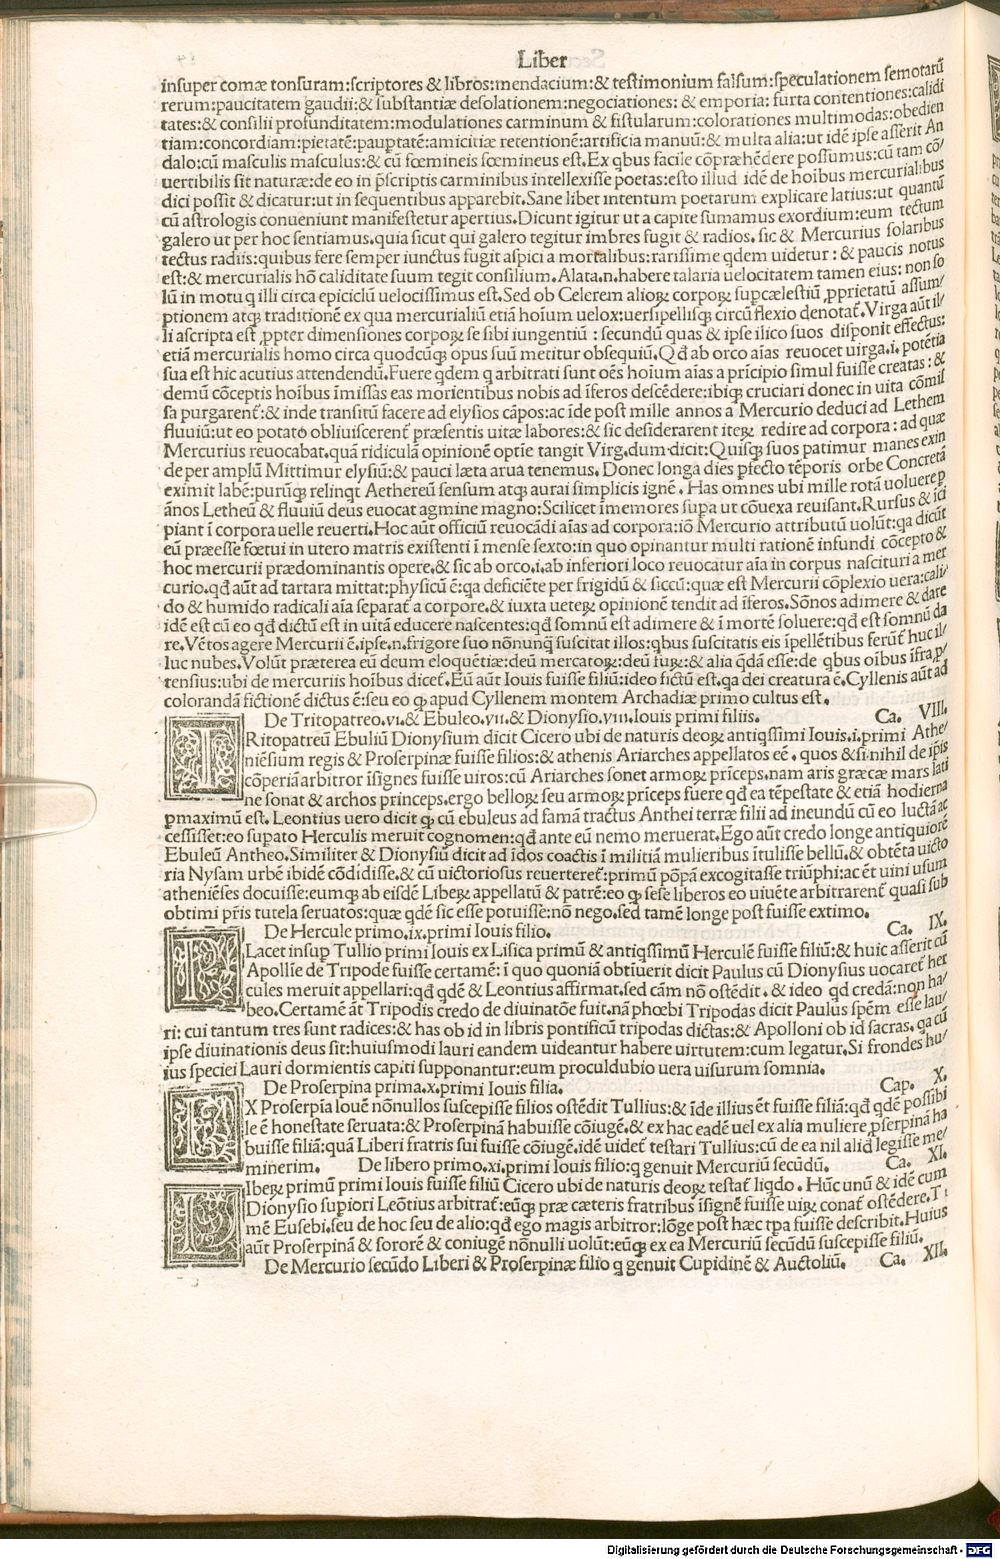 Liber
insuper comæ tonsuram:scriptores & libros:mendacium:& testimonium falsum:speculationem semotarũ
rerum:paucitatem gaudii:& substantiæ desolationem:negociationes: & emporia: furta contentiones:calidi
tates:& consilii profunditatem:modulationes carminum & fistularum:colorationes multimodas:obedien
tiam:concordiam:pietatẽ:pauptatẽ:amicitiæ retentionẽ:artificia manuũ:& multa alia:ut idẽ ipse asserit An
dalo:cũ masculis masculus:& cũ fœmineis fœmineus est.Ex qbus facile cõpræhẽdere possumus:cũ tam cõ/
uertibilis sit naturæ:de eo in p̃scriptis carminibus intellexisse poetas:esto illud idẽ de hoibus mercurialibus
dici possit & dicatur:ut in sequentibus apparebit.Sane libet intentum poetarum explicare latius:ut quantũ
cũ astrologis conueniunt manifestetur apertius.Dicunt igitur ut a capite sumamus exordium:eum tectum
galero ut per hoc sentiamus.quia sicut qui galero tegitur imbres fugit & radios. sic & Mercurius solaribus
tectus radiis:quibus fere semper iunctus fugit aspici a mortalibus:rarissime qdem uidetur : & paucis notus
est:& mercurialis hõ caliditate suum tegit consilium.Alata.n.habere talaria uelocitatem tamen eius: non so
lũ in motu q illi circa epiciclũ uelocissimus est.Sed ob Celerem alioꝝ corpoꝝ supcælestiũ ꝓprietatũ assum/
ptionem atqꝫ traditionẽ ex qua mercurialiũ etiã hoium uelox:uersipellisqꝫ circũ flexio denotat̃.Virga aũt il/
li ascripta est ꝓpter dimensiones corpoꝝ se sibi iungentiũ : secundũ quas & ipse ilico suos disponit effectus:
etiã mercurialis homo circa quodcũqꝫ opus suũ metitur obsequiũ.Qđ ab orco aias reuocet uirga.i. potẽtia
sua est hic acutius attendendũ.Fuere qdem q arbitrati sunt oẽs hoium aias a prĩcipio simul fuisse creatas : &
demũ cõceptis hoĩbus ĩmissas eas morientibus nobis ad ĩferos descẽdere:ibiqꝫ cruciari donec in uita cõmis
sa purgarent̃:& inde transitũ facere ad elysios cãpos:ac ĩde post mille annos a Mercurio deduci ad Lethem
fluuiũ:ut eo potato obliuiscerent̃ præsentis uitæ labores:& sic desiderarent iteꝝ redire ad corpora : ad quæ
Mercurius reuocabat.quã ridiculã opinionẽ optĩe tangit Virg.dum dicit:Quisqꝫ suos patimur manes exin
de per amplũ Mittimur elysiũ:& pauci læta arua tenemus. Donec longa dies pfecto tẽporis orbe Concretã
eximit labẽ:purũqꝫ relinqt Aethereũ sensum atqꝫ aurai simplicis ignẽ. Has omnes ubi mille rotã uoluere p
ãnos Letheũ & fluuiũ deus euocat agmine magno:Scilicet ĩmemores supa ut cõuexa reuisant.Rursus & ĩci
piant ĩ corpora uelle reuerti.Hoc aũt officiũ reuocãdi aĩas ad corpora:iõ Mercurio attributũ uolũt:qa dicũt
eũ præesse fœtui in utero matris existenti ĩ mense sexto:in quo opinantur multi rationẽ infundi cõcepto &
hoc mercurii prædominantis opere.& sic ab orco.i.ab inferiori loco reuocatur aĩa in corpus nascituri a mer
curio.qđ aũt ad tartara mittat:physicũ ẽ:qa deficiẽte per frigidũ & siccũ:quæ est Mercurii cõplexio uera:cali/
do & humido radicali aĩa separat̃ a corpore.& iuxta ueteꝝ opinionẽ tendit ad ĩferos.Sõnos adimere & dare
idẽ est cũ eo qđ dictũ est in uitã educere nascentes:qđ somnũ est adimere & ĩ mortẽ soluere:qđ est somnũ da
re.Vẽtos agere Mercurii ẽ.ipse.n.frigore suo nõnunq̃ suscitat illos:qbus suscitatis eis ĩpellẽtibus ferũt̃ huc il/
luc nubes.Volũt præterea eũ deum eloquẽtiæ:deũ mercatoꝝ:deũ fuꝝ:& alia qdã esse:de qbus oĩbus ĩfra,p/
tensius:ubi de mercuriis hoĩbus dicet̃.Eũ aũt Iouis fuisse filiũ:ideo fictũ est.qa dei creatura ẽ.Cyllenis aũt ad
colorandã fictionẽ dictus ẽ:seu eo ꝙ apud Cyllenem montem Archadiæ primo cultus est.
De Tritopatreo.vi.& Ebuleo.vii.& Dionysio.viii.Iouis primi filiis. Ca. VIII.
TRitopatreũ Ebuliũ Dionysium dicit Cicero ubi de naturis deoꝝ antiqssimi Iouis.i.primi Athe/
niẽsium regis & Proserpinæ fuisse filios:& athenis Ariarches appellatos eẽ . quos & si nihil de ipis
cõperiã arbitror ĩsignes fuisse uiros:cũ Ariarches sonet armoꝝ prĩceps.nam aris græcæ mars lati
ne sonat & archos princeps.ergo belloꝝ seu armoꝝ prĩceps fuere qđ ea tẽpestate & etiã hodierna
pmaximũ est. Leontius uero dicit ꝙ cũ ebuleus ad famã tractus Anthei terræ filii ad ineundũ cũ eo luctã ac
cessisset:eo supato Herculis meruit cognomen:qđ ante eũ nemo meruerat.Ego aũt credo longe antiquiorẽ
Ebuleũ Antheo.Similiter & Dionysiũ dicit ad ĩdos coactis ĩ militiã mulieribus ĩtulisse bellũ.& obtẽta uicto
ria Nysam urbẽ ibidẽ cõdidisse.& cũ uictoriosus reuerteret̃:primũ põpã excogitasse triũphi:ac ẽt uini usum
atheniẽses docuisse:eumqꝫ ab eisdẽ Libeꝝ appellatũ & patrẽ:eo ꝙ sese liberos eo uiuẽte arbitrarent̃ quasi sub
obtimi pr̃is tutela seruatos:quæ qdẽ sic esse potuisse:nõ nego.sed tamẽ longe post fuisse extimo.
De Hercule primo.ix.primi Iouis filio. Ca. IX.
PLacet insup Tullio primi Iouis ex Lisica primũ & antiqssimũ Herculẽ fuisse filiũ:& huic asserit cũ
Apollĩe de Tripode fuisse certamẽ: ĩ quo quoniã obtĩuerit dicit Paulus cũ Dionysius uocaret̃ her
cules meruit appellari:qđ qdẽ & Leontius affirmat.sed cãm nõ ostẽdit . & ideo qđ credã:non ha/
beo.Certamẽ ãt Tripodis credo de diuinatõe fuit.nã phœbi Tripodas dicit Paulus spẽm esse lau/
ri: cui tantum tres sunt radices:& has ob id in libris pontificũ tripodas dictas:& Apolloni ob id sacras. qa cũ
ipse diuinationis deus sit:huiusmodi lauri eandem uideantur habere uirtutem:cum legatur.Si frondes hu/
ius speciei Lauri dormientis capiti supponantur:eum proculdubio uera uisurum somnia.
De Proserpina prima.x.primi Iouis filia. Cap. X.
EX Proserpĩa Iouẽ nõnullos suscepisse filios ostẽdit Tullius:& ĩde illius ẽt fuisse filiã:qđ qdẽ possibi
le ẽ honestate seruata:& Proserpinã habuisse cõiugẽ.& ex hac eadẽ uel ex alia muliere pserpinã ha
buisse filiã:quã Liberi fratris sui fuisse cõiugẽ.idẽ uidet̃ testari Tullius:cũ de ea nil aliđ legisse me/
minerim. De libero primo.xi.primi Iouis filio:q genuit Mercuriũ secũdũ. Ca. XI.
LIbeꝝ primũ primi Iouis fuisse filiũ Cicero ubi de naturis deoꝝ testat̃ liqdo . Hũc unũ & idẽ cum
Dionysio supiori Leõtius arbitrat̃:eũqꝫ præ cæteris fratribus ĩsignẽ fuisse uiꝝ conat̃ ostẽdere.T
mẽ Eusebi.seu de hoc seu de alio:qđ ego magis arbitror:lõge post hæc tpa fuisse describit.Huius
aũt Proserpinã & sororẽ & coniugẽ nõnulli uolũt:eũqꝫ ex ea Mercuriũ secũdũ suscepisse filiũ.
De Mercurio secũdo Liberi & Proserpinæ filio q genuit Cupidinẽ & Auctoliũ. Ca. XII.
Digitalisierung gefördert durch die Deutsche Forschungsgemeinschaft - DFG